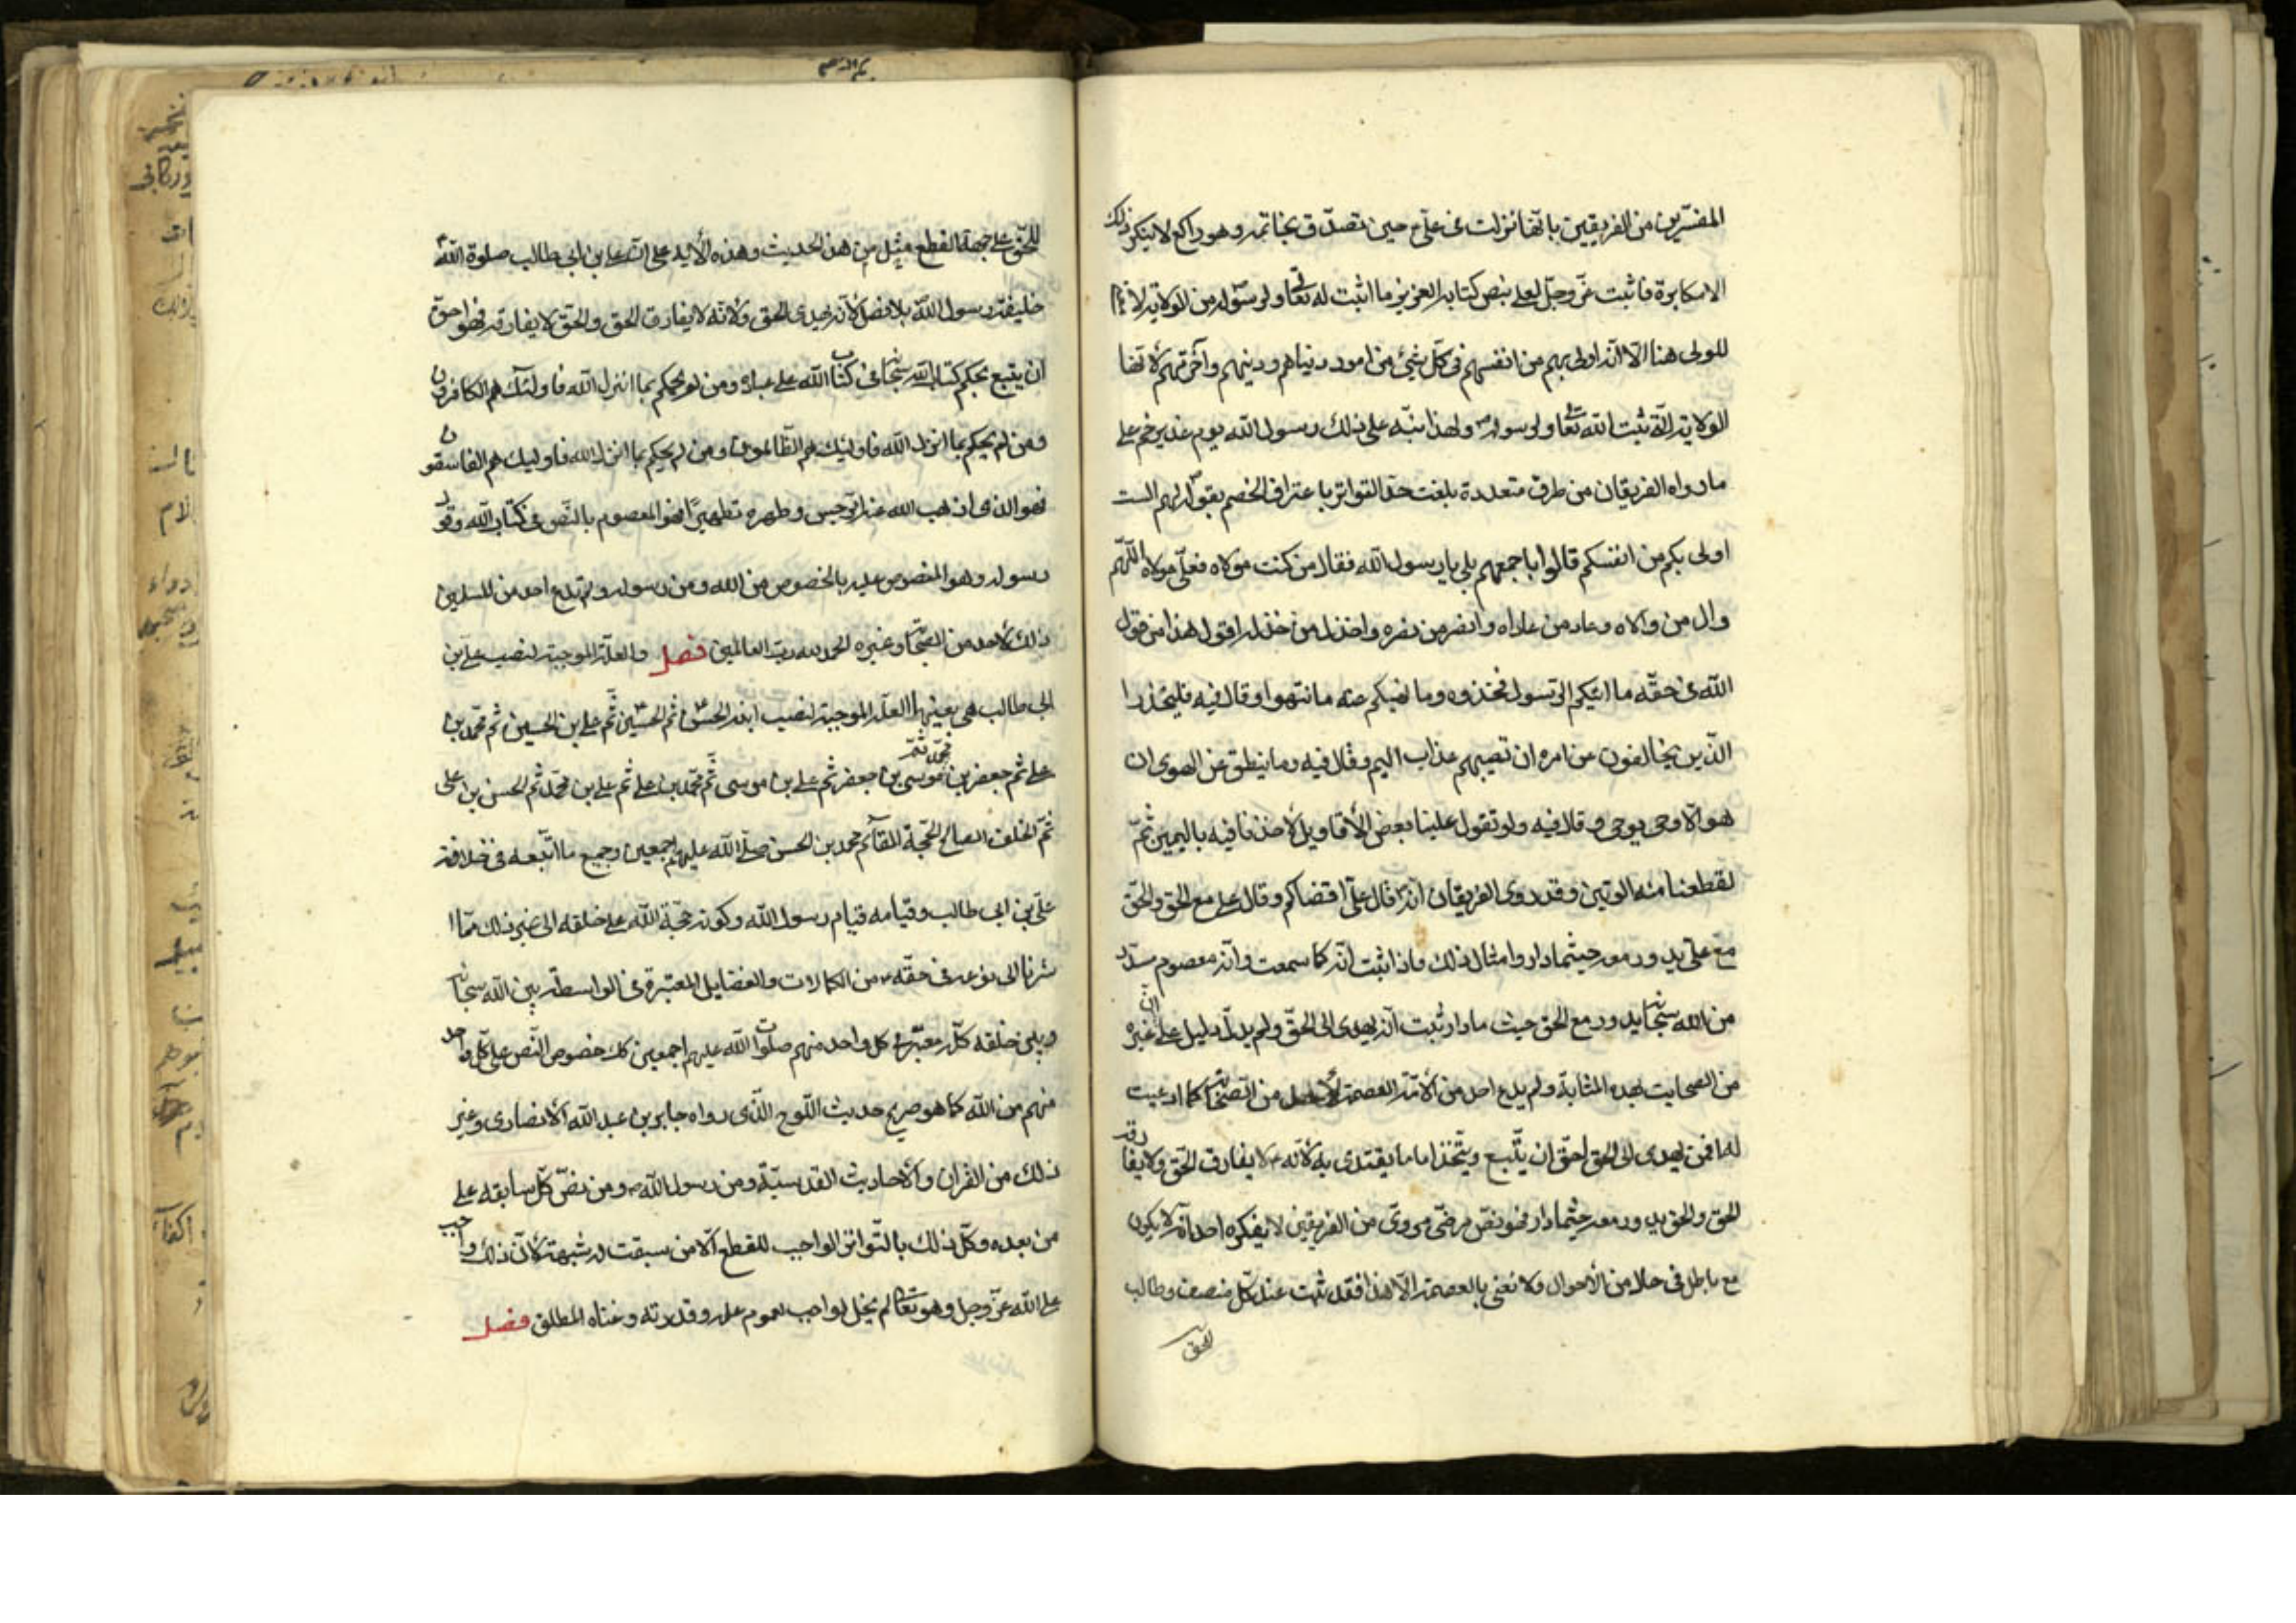 المفسّرين من الفريقين بانّها نزلت فى علىّ ع حين تصدّق بخاتمه وهو راكع لا ينكر ذلك
الا مكابرة فاثبت عزّ وجلّ لعلى بنص كتابه العزيز ما اثبت له تعالى ولرسوله من الولاية
للمولى هنا الّا انّه اولى بهم من انفسهم فى كلّ شيئ من امور دنياهم ودينهم وآخرتهم لانّها
الولاية الّتى ثبت لله تعالى ولرسوله ص ولهذا نبّه على ذلك رسول الله يوم غدير خم على
ما رواه الفريقان من طرق متعددة بلغت حدّ التواتر باعتراف الخصم بقوله لهم الست
اولى بكم من انفسكم قالوا باجمعهم بلى يا رسول الله فقال من كنت مولاه فعلىّ مولاه اللّهمّ
وال من والاه وعاد من عاداه وانصر من نصره واخذل من خذله اقول هذا من قول
الله فى حقّه ما اتيكم الرّسول فخذوه وما نهيكم عنه فانتهوا وقال فيه فليحذر
الّذين يخالفون عن امره ان تصيبهم عذاب اليم وقال فيه وما ينطق عن الهوى ان
هو الّا وحى يوحى وقال فيه ولو تقول علينا بعض الأقاويل لأخذنا فيه باليمين ثمّ
لقطعنا منه الوتين وقد روى الفريقان انّه قال علىّ اقضاكم وقال على مع الحق والحقّ
مع علىّ يدور معه حيثما دار وامثال ذلك واذا ثبت انّه كما سمعت وانّه معصوم مسدّد
من الله سبحانه يدور مع الحق حيث ما دار ثبت انّه يهدى الى الحقّ ولم يدلّ دليل على انّ غيره
من الصحابة بهذه المثابة ولم يدع احد من الأمّة العصمة لأحد من الصحابة كما ادعيت
له افمن يهدى الى الحق احقّ ان يتّبع ويتّخذ اماما يقتدى به لأنّه ع لا يفارق الحقّ ولا يفارقه
الحق والحق يدور معه حيثما دار فهو نصّ مرضىّ مروىّ من الفريقين لا ينكره احد انّه لا يكون
مع باطل فى حال من الأحوال ولا نعنى بالعصمة الّا هذا فقد ثبت عند كلّ منصف وطالب
للحق
للحقّ على جهة القطع مثل من هذا الحديث وهذه الأية على انّ على بن ابى طالب صلوة الله
خليفة رسول الله بلا فصل لأنّه يهدى الحق ولأنّه لا يفارق الحق والحقّ لا يفارقه فهو احقّ
ان يتبع بحكم كتاب الله سبحانه فى كتاب الله على عباده ومن لم يحكم بما انزل الله فاولئك هم الكافرون
ومن لم يحكم بما انزل الله فاولئيك هم الظّالمون ومن لم يحكم بما انزل الله فاولئيك هم الفاسقون
فهو الذى اذهب الله عنه الرّجس وطهره تطهيرًا فهو المعصوم بالنّص فى كتاب الله وقول
رسوله وهو المنصوص عليه بالخصوص من الله ومن رسوله ولم يدع احد من المسلمين
ذلك لأحد من الصّحابة وغيره الحمد لله ربّ العالمين فصل والعلّة الموجبة لنصب على بن
ابى طالب هى بعينها العلّة الموجبة لنصب ابنه الحسن ثم الحسين ثم على بن الحسين ثم محمّد بن
على ثم جعفر بن محمّد ثم موسى بن جعفر ثم على بن موسى ثم محمّد بن على ثم على بن محمّد ثم الحسن بن على
ثمّ الخلف الصالح الحجّة القآئم محمد بن الحسن صلّى الله عليهم اجمعين وجميع ما اتّبعه فى خلافة
علىّ بن ابى طالب وقيامه قيام رسول الله وكونه حجّة الله على خلقه الى غير ذلك ممّا ا
شرنا الى نوعه فى حقّه ع من الكمالات والفضايل المعتبرة فى الواسطة بين الله سبحانه
وبين خلقه كلّه معتبر فى كل واحد منهم صلوات الله عليهم اجمعين كك خصوص النّص على كلّ واحد
منهم من الله كما هو صريح حديث اللّوح الّذى رواه جابر بن عبد الله الأنصارى وغير
ذلك من القران والأحاديث القدسيّة ومن رسول الله ص ومن نصّ كلّ سابقه على
من بعده وكلّ ذلك بالتّواتر الواجب للقطع الّا من سبقت له شبهة لأنّ ذلك واجب
على الله عزّ وجل وهو تعالى لم يخل بواجب لعموم علمه وقدرته وغناه المطلق فصل